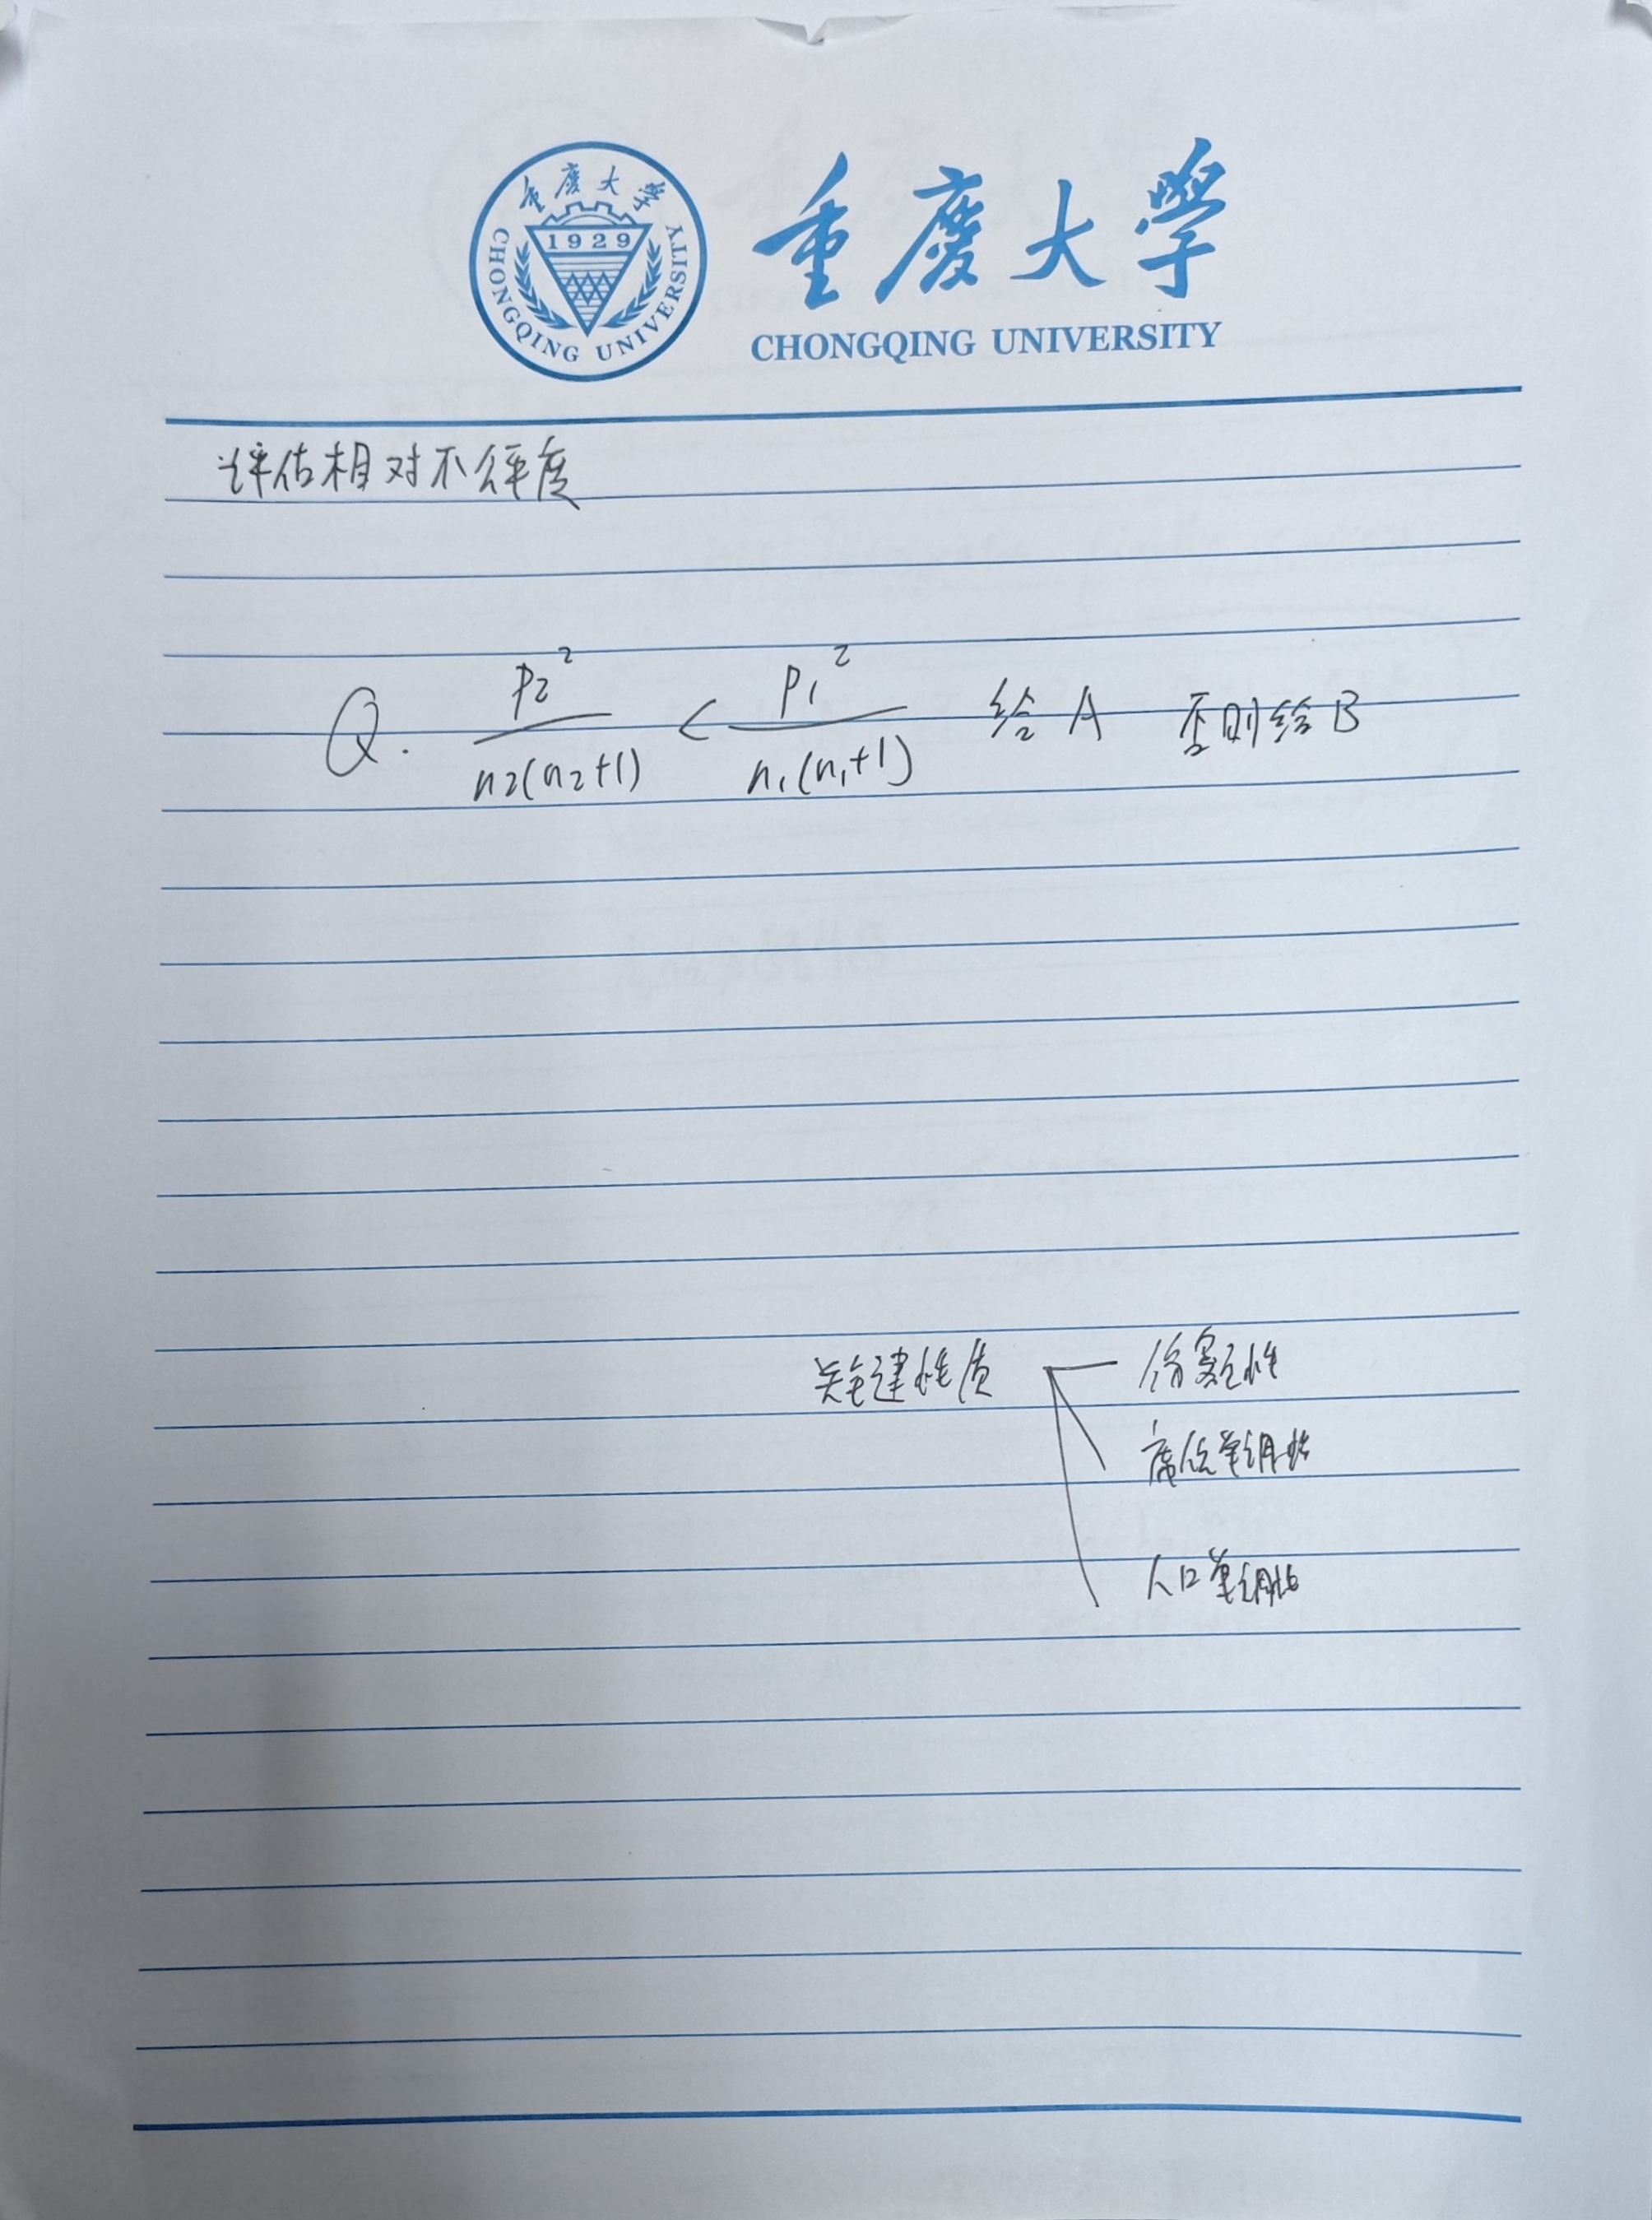 重慶大學
CHONGQING UNIVERSITY
1929
重慶大學
CHONGQING UNIVERSITY
评估相对不公平度
Q. p2²/n2(n2+1) < p1²/n1(n1+1) 给A 否则给B
关键性质
份额性
席位单调性
人口单调性